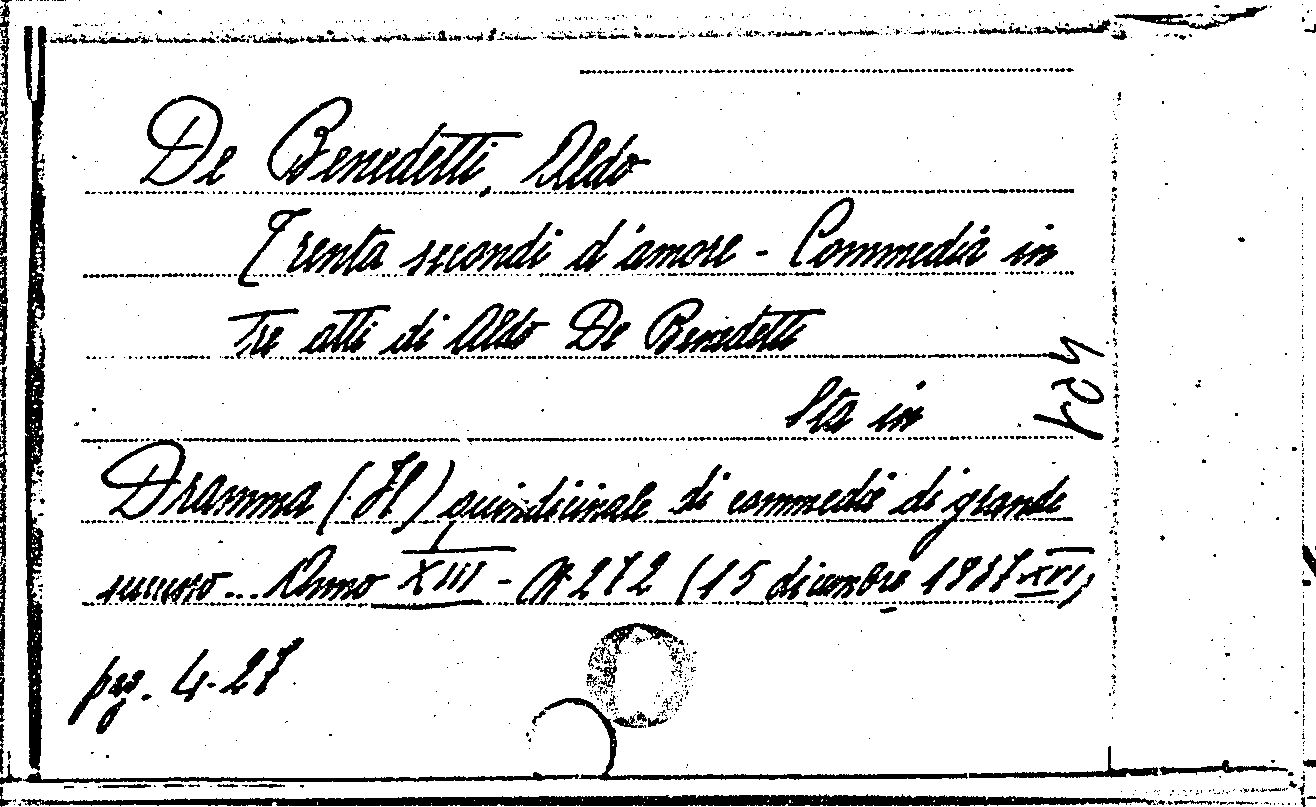 De Benedetti, Aldo
Trenta secondi d'amore - Commedia in
tre atti di Aldo De Benedetti
Sta in
Dramma (Il) quindicinale di commedie di grande
successo... Anno XIII - N. 272 (15 dicembre 1937 XVI)
pag. 4-27